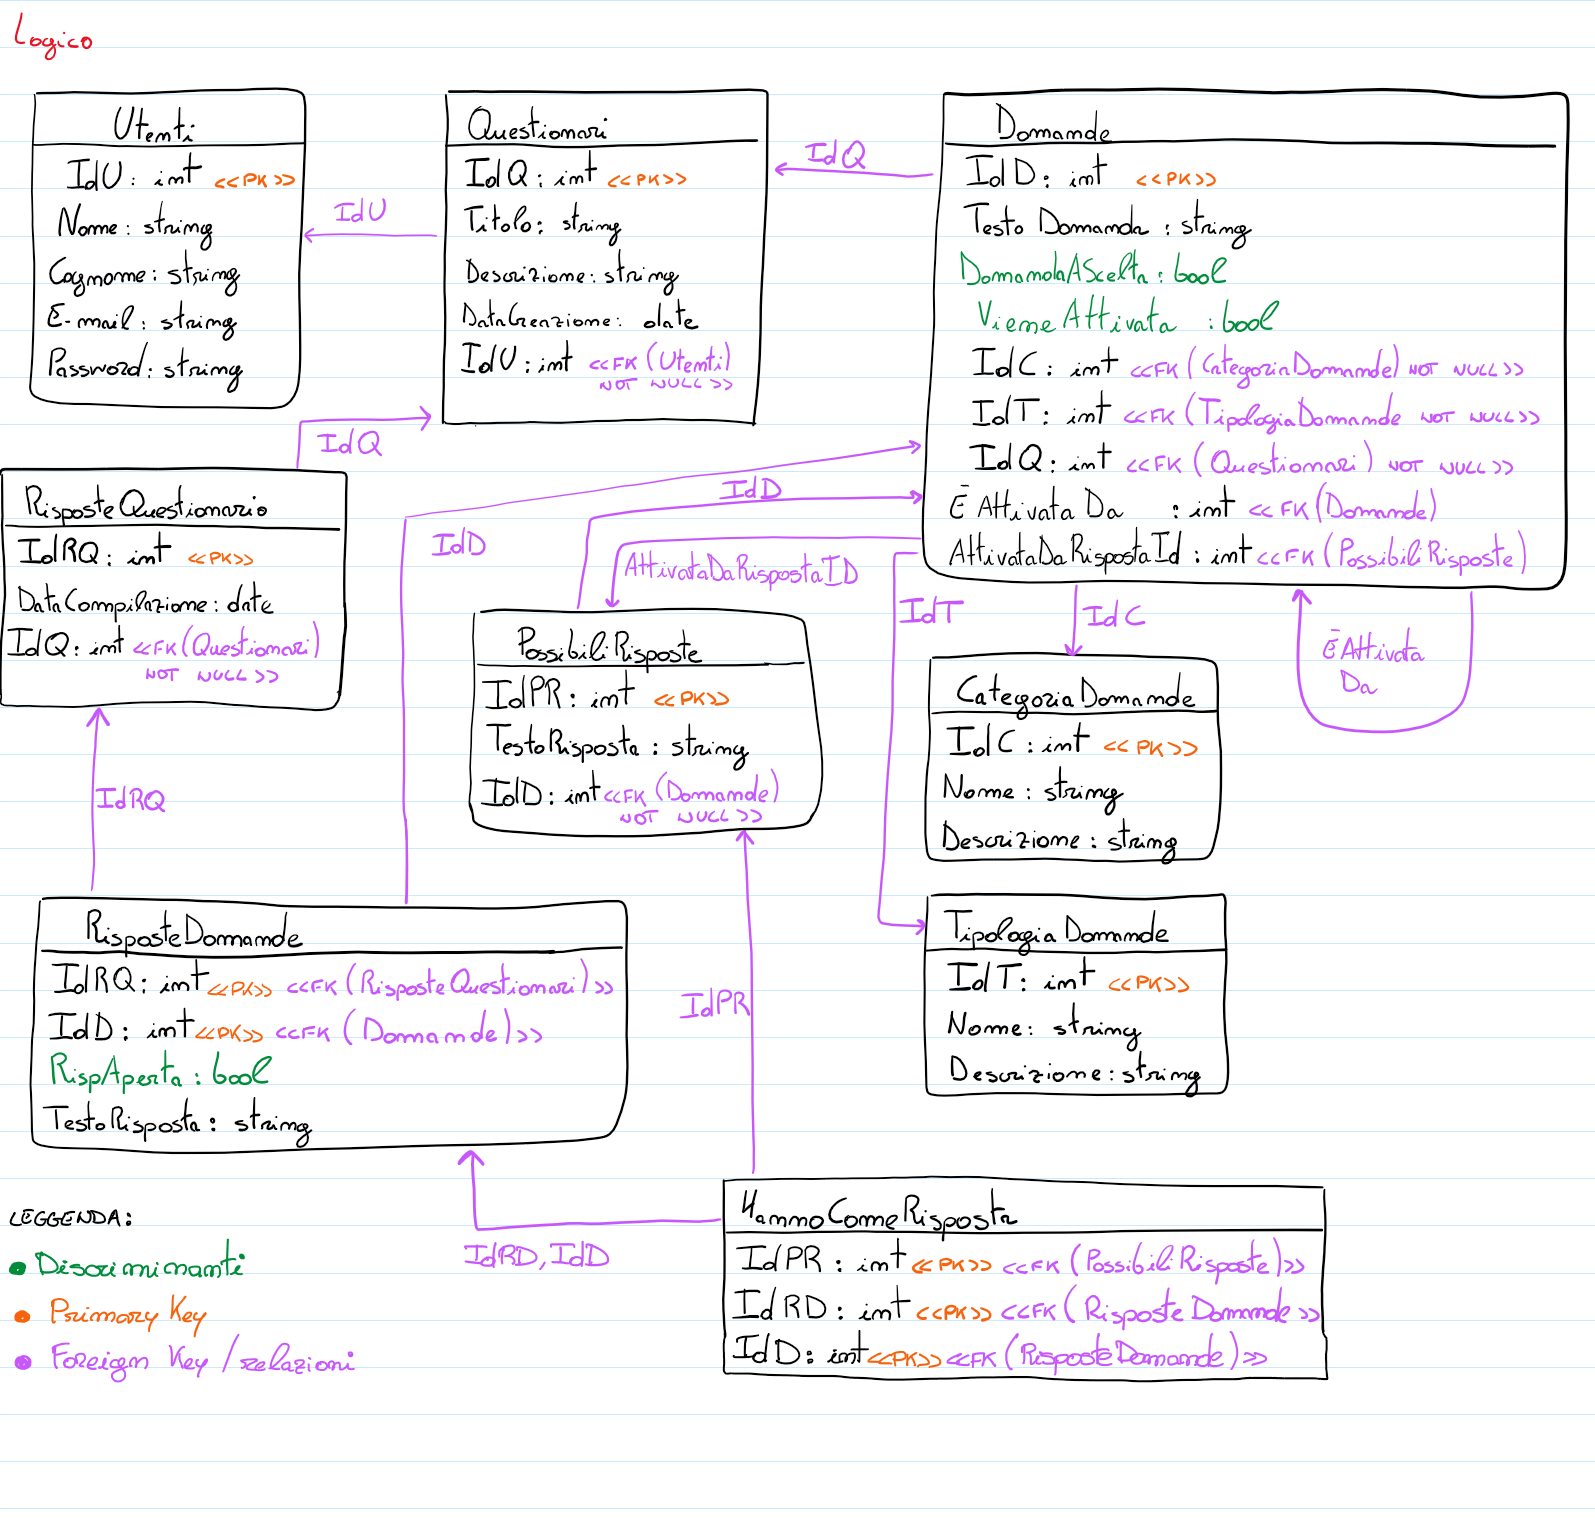 Logico
Utenti
IdU: int <<PK>>
Nome: string
Cognome: string
E-mail: string
Password: string
IdU
Questionari
IdQ: int <<PK>>
Titolo: string
Descrizione: string
DataCreazione: date
IdU: int <<FK (Utenti)
NOT NULL>>
IdQ
Domande
IdD: int <<PK>>
Testo Domanda: string
DomandaAScelta: bool
VieneAttivata: bool
IdC: int <<FK (CategoriaDomande) NOT NULL>>
IdT: int <<FK (TipologiaDomande NOT NULL>>
IdQ: int <<FK (Questionari) NOT NULL>>
È Attivata Da : int <<FK (Domande)
AttivataDaRispostaId: int <<FK (PossibiliRisposte)
IdQ
RisposteQuestionario
IdRQ: int <<PK>>
DataCompilazione: date
IdQ: int <<FK (Questionari)
NOT NULL>>
IdD
IdD
AttivataDaRispostaID
IdT
IdC
È Attivata
Da
PossibiliRisposte
IdPR: int <<PK>>
TestoRisposta: string
IdD: int <<FK (Domande)
NOT NULL>>
CategoriaDomande
IdC: int <<PK>>
Nome: string
Descrizione: string
IdRQ
RisposteDomande
IdRQ: int <<PK>> <<FK (RisposteQuestionari)>>
IdD: int <<PK>> <<FK (Domande)>>
RispAperta: bool
TestoRisposta: string
IdPR
TipologiaDomande
IdT: int <<PK>>
Nome: string
Descrizione: string
IdRD, IdD
HannoComeRisposta
IdPR: int <<PK>> <<FK (PossibiliRisposte)>>
IdRD: int <<PK>> <<FK (RisposteDomande>>
IdD: int <<PK>> <<FK (RisposteDomande)>>
LEGGENDA:
• Discriminanti
• Primary Key
• Foreign Key / relazioni